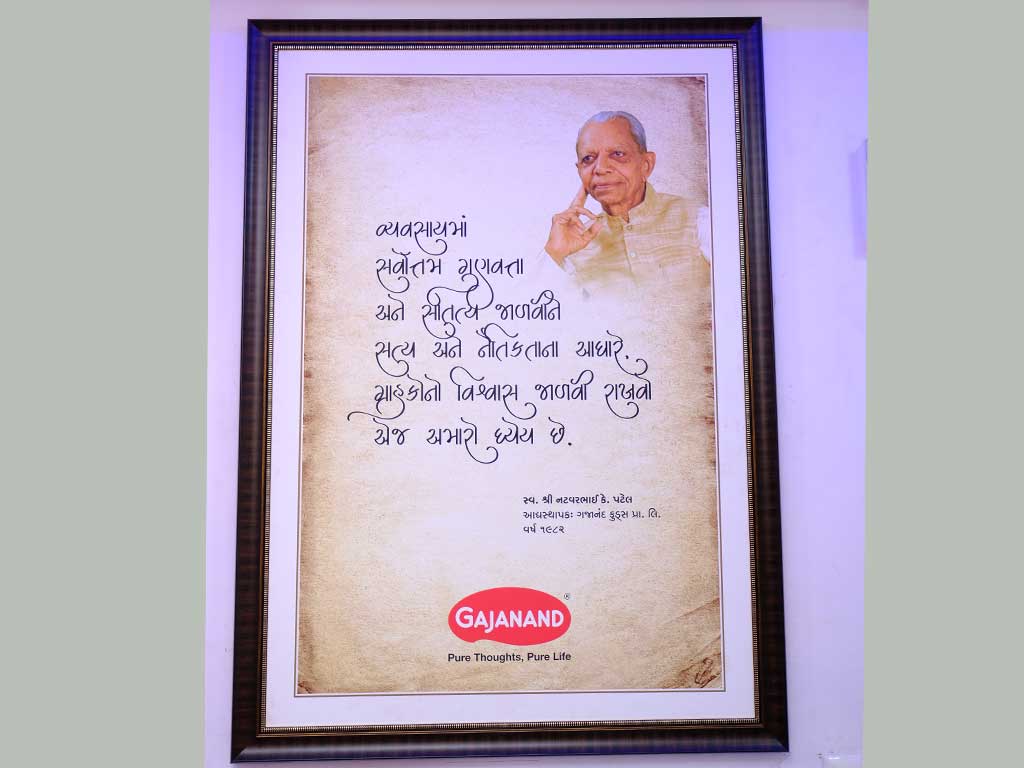 વ્યવસાયમાં
સર્વોત્તમ ગુણવત્તા
અને સાતત્ય જાળવીને
સત્ય અને નૈતિકતાના આધારે.
ગ્રાહકોનો વિશ્વાસ જાળવી રાખવો
એજ અમારો ધ્યેય છે.
સ્વ. શ્રી નટવરભાઈ કે. પટેલ
આદ્યસ્થાપક: ગજાનંદ ફુડ્સ પ્રા. લિ.
વર્ષ ૧૯૮૨
GAJANAND®
Pure Thoughts, Pure Life